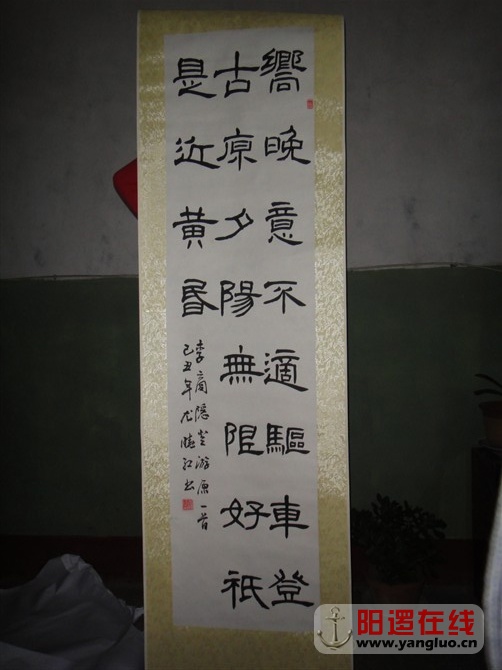 嚮晚意不適驅車登
古原夕陽無限好祇
是近黃昬
李商隱登游原一首
己丑年 书
阳逻在线
www.yangluo.cn